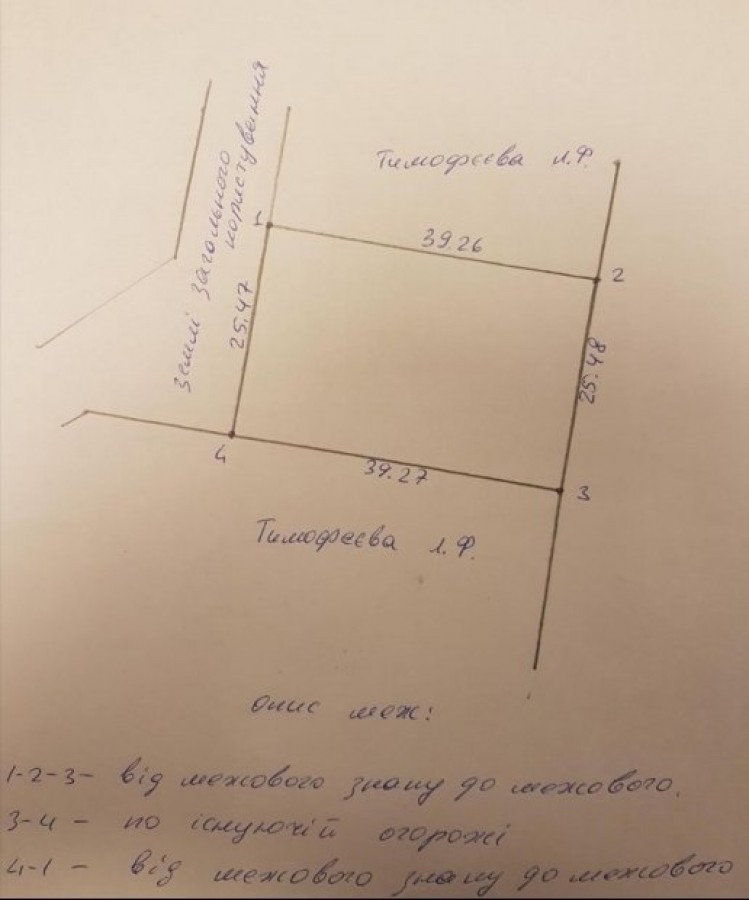 землі загального
користування
Тимофєєва Л.Ф.
1
39.26
2
25.47
25.48
4
39.27
3
Тимофєєва Л.Ф.
опис меж:
1-2-3- від межового знаку до межового.
3-4 - по існуючій огорожі
4-1 - від межового знаку до межового